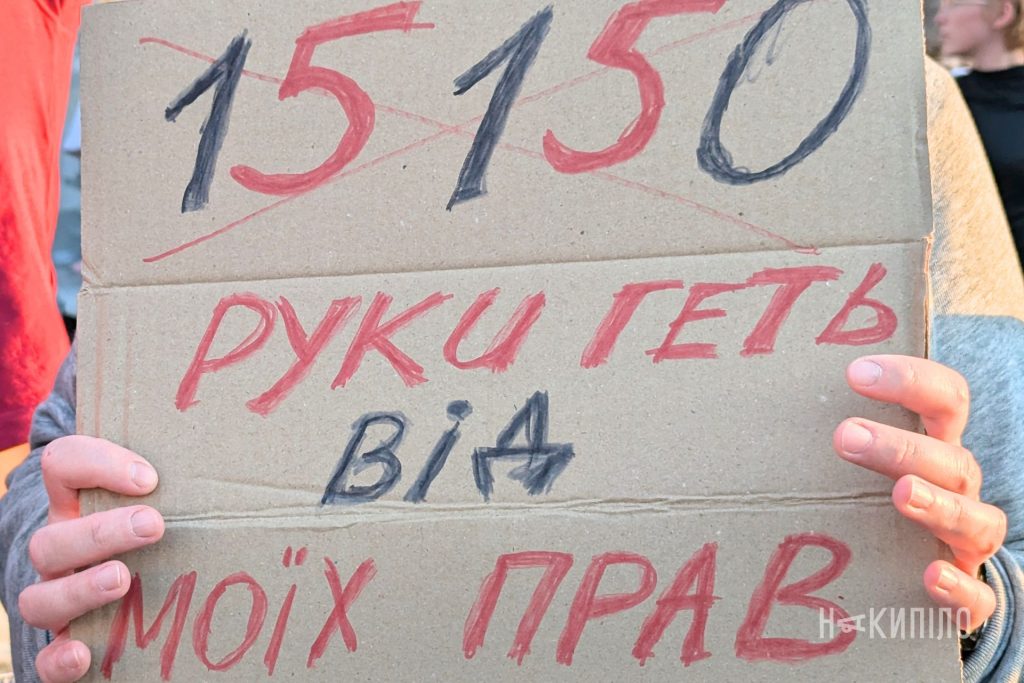 15150
РУКИ ГЕТЬ
ВІД
МОЇХ ПРАВ
НАКИПІЛО